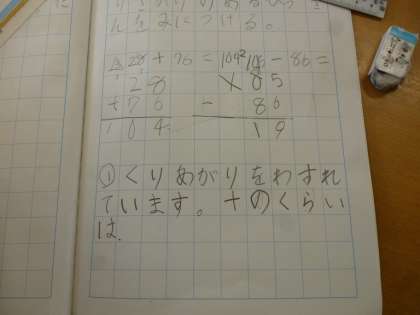 んをみにつける。
28+76=104 105-86=
28
+76
104
105
- 86
19
①くりあがりをわすれ
ています。十のくらい
は、